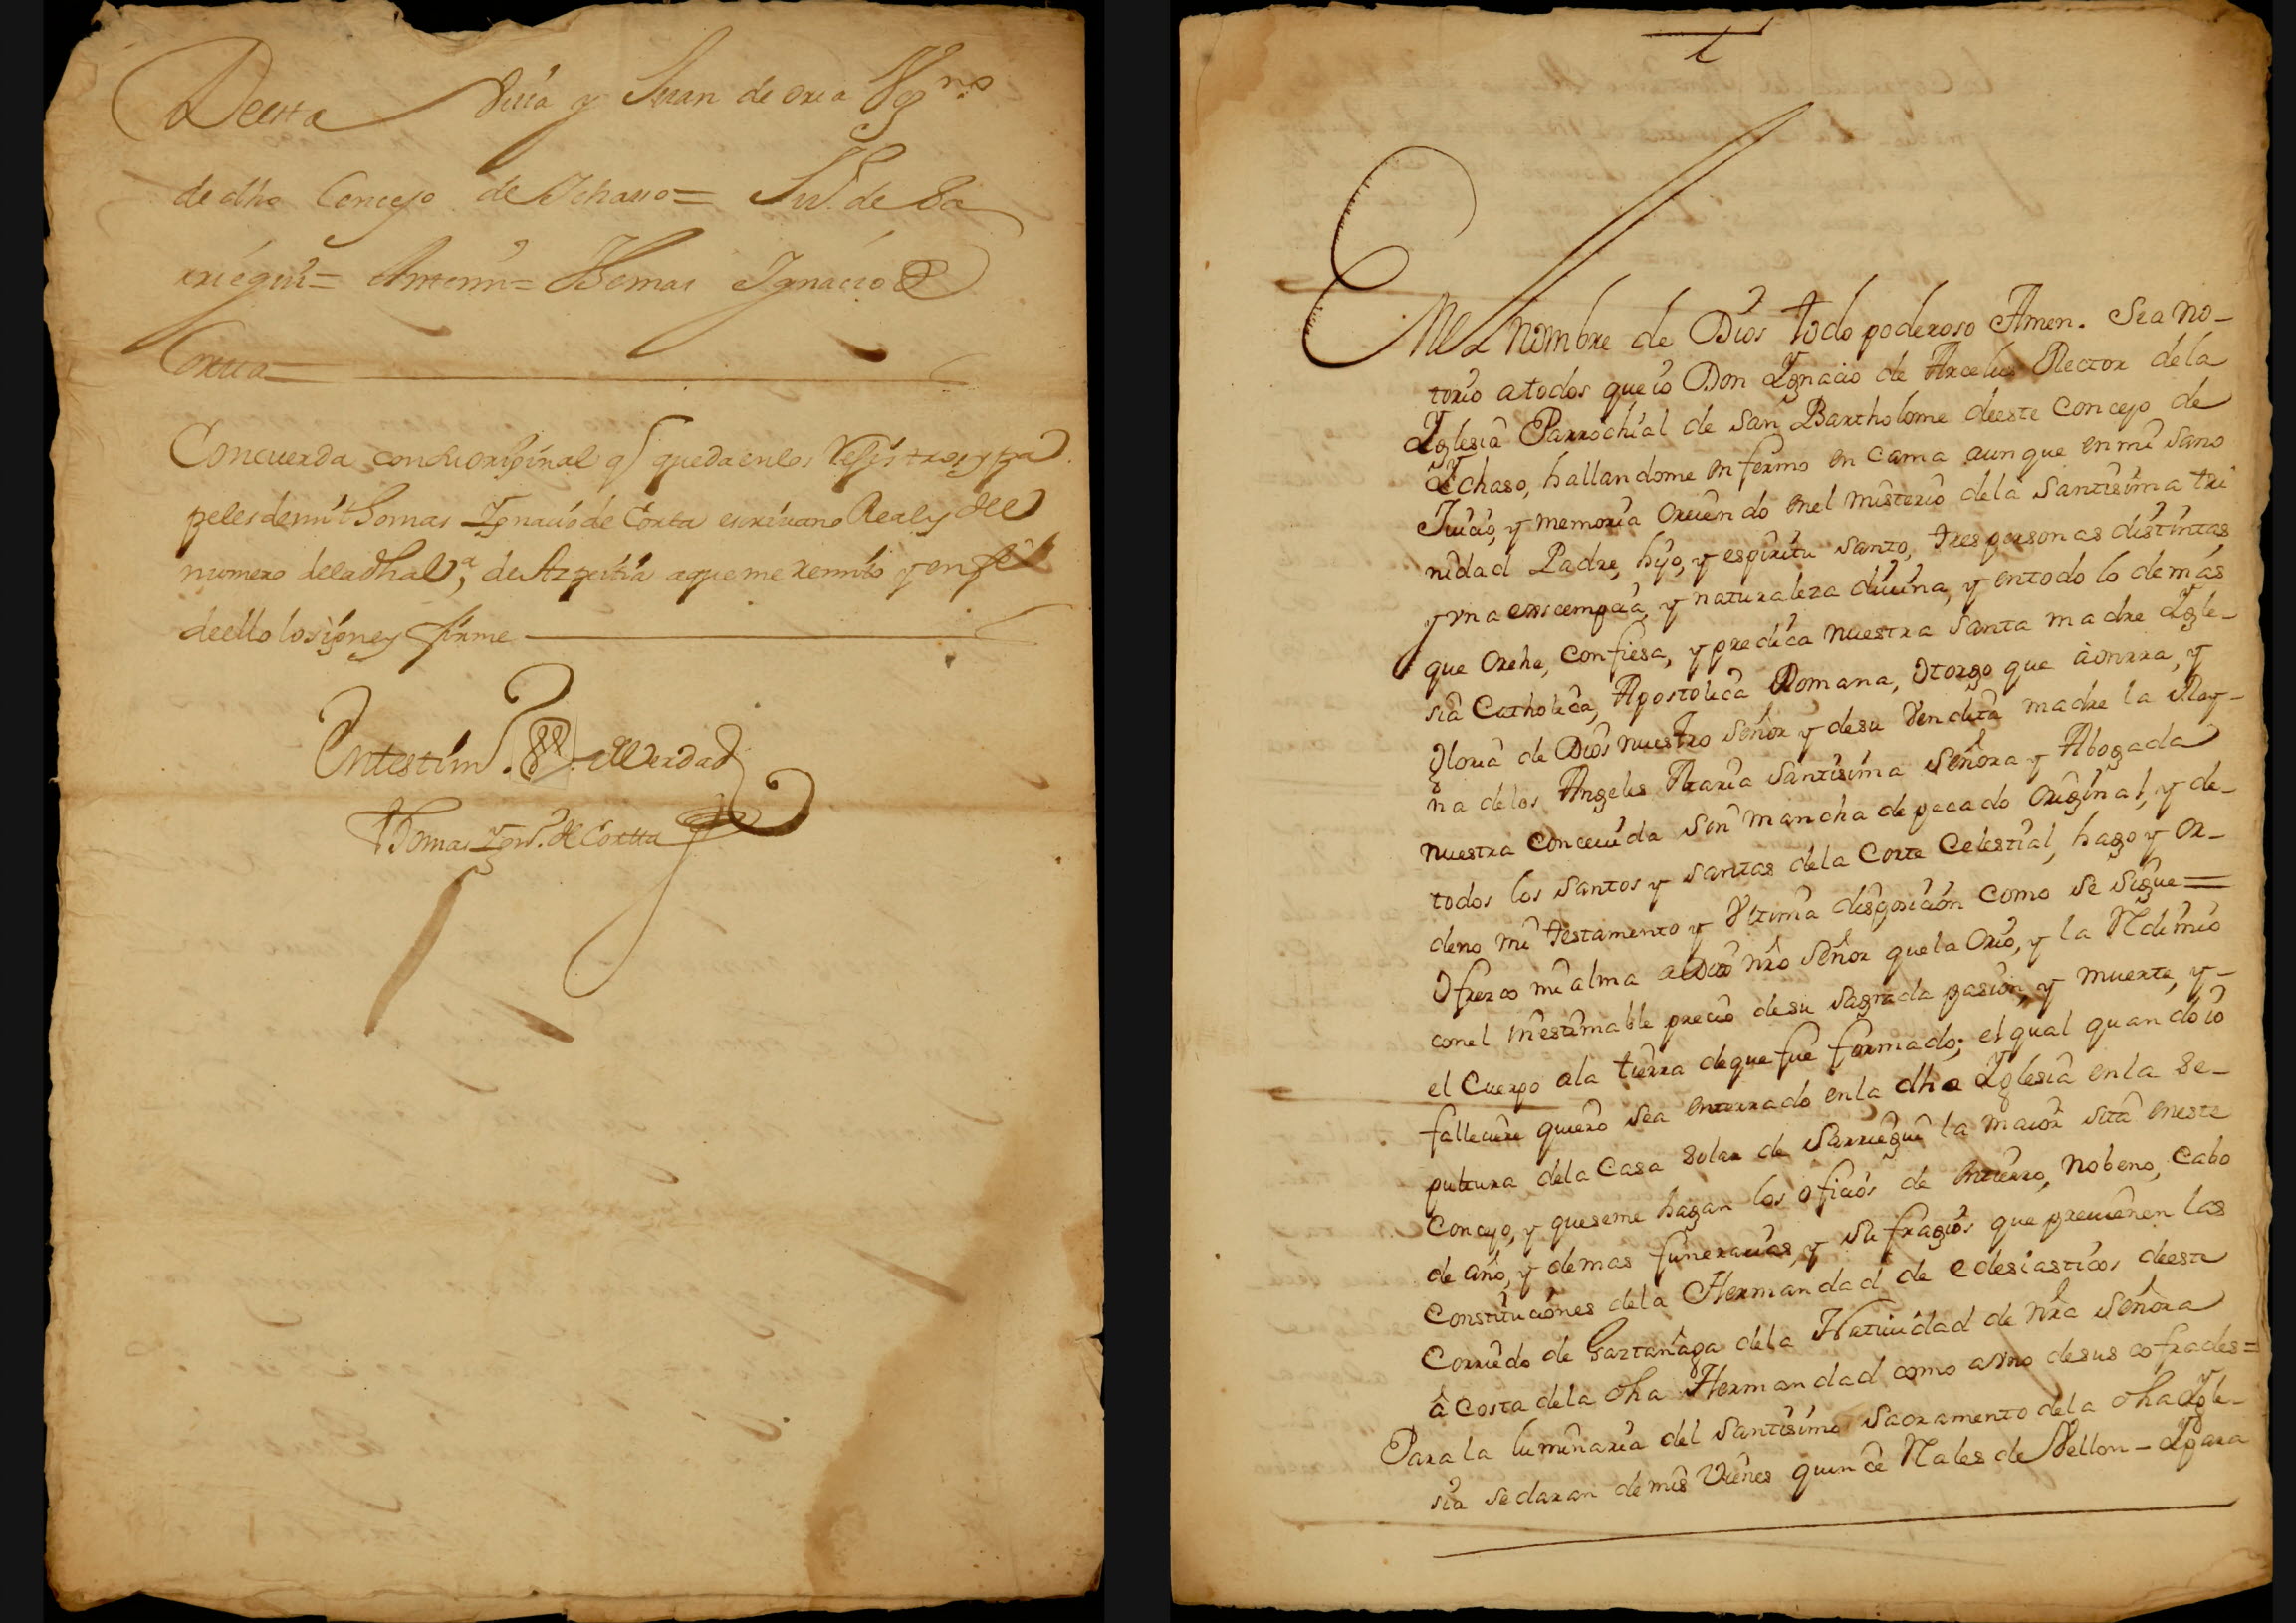 De esta Villa y Juan de oria Vez.nos
de dho Concejo de Ychasso = Ju.º de Sa
rriegui = Antemi = Thomas Ygnacio de
Corta =
Concuerda con su original q͂ queda en los Registros y pa
peles de mi thomas Ygnacio de Corta escrivano Real y del
numero de la dha V.ª de Azpeitia a que me remito y en fee
de ello lo signe y firme
En testim.º de Verdad
Thomas Ygn.º de Cortta
t
En el Nombre de Dios todo poderoso Amen. Sea no-
torio a todos que io Don Ygnacio de Arcelus Rector de la
Yglesia Parrochial de San Bartholome de este Concejo de
Ychaso, hallandome enfermo en cama aunque en mi sano
Juicio, y memoria Creiendo en el misterio de la Santisima tri
nidad Padre, hijo, y espiritu Santo, tres personas distintas
y vna essempcia, y naturaleza diuina, y en todo lo demas
que Crehe, Confiesa, y predica nuestra Santa madre Ygle-
sia Catholica, Apostolica Romana, Otorgo que à onrra, y
Gloria de Dios nuestro Señor y de su Vendita madre la Rey-
na de los Angeles Maria Santisima Señora y Abogada
nuestra Conceuida sin mancha de pecado Original, y de-
todos los Santos y Santas de la Corte Celestial, hago y or-
deno mi testamento y Vltima disposicion como se sigue =
Ofrezco mi alma a Dios nro Señor que la Crio, y la Redimio
con el inestimable precio de su Sagrada pasion, y muerte, y-
el Cuerpo a la tierra de que fue formado; el qual quando io
falleciere quiero sea enterrado en la dha Yglesia en la se-
pultura de la Casa solar de Sarriegui la maior sita en este
Concejo, y que se me hagan los oficios de entierro, nobeno, Cabo
de año, y demas funerarias, y sufragios que preuienen las
Constituciones de la Hermandad de eclesiasticos de este
Corriedo de Gaztañaga de la Natiuidad de nra Señora
â costa de la dha Hermandad como a vno de sus cofrades =
Para la luminaria del Santisimo Sacramento de la dha Ygle-
sia se daran de mis Vienes quince Rales de Vellon - Y para